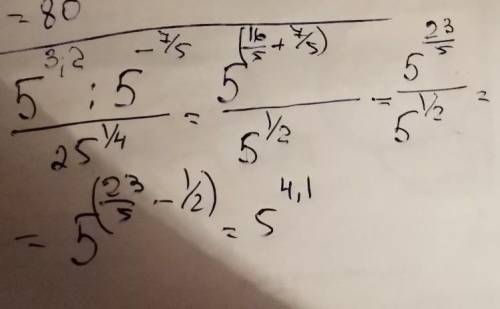 = 80
5^{3,2} : 5^{-7/5} / 25^{1/4} = 5^{(16/5 + 7/5)} / 5^{1/2} = 5^{23/5} / 5^{1/2} =
= 5^{(23/5 - 1/2)} = 5^{4,1}